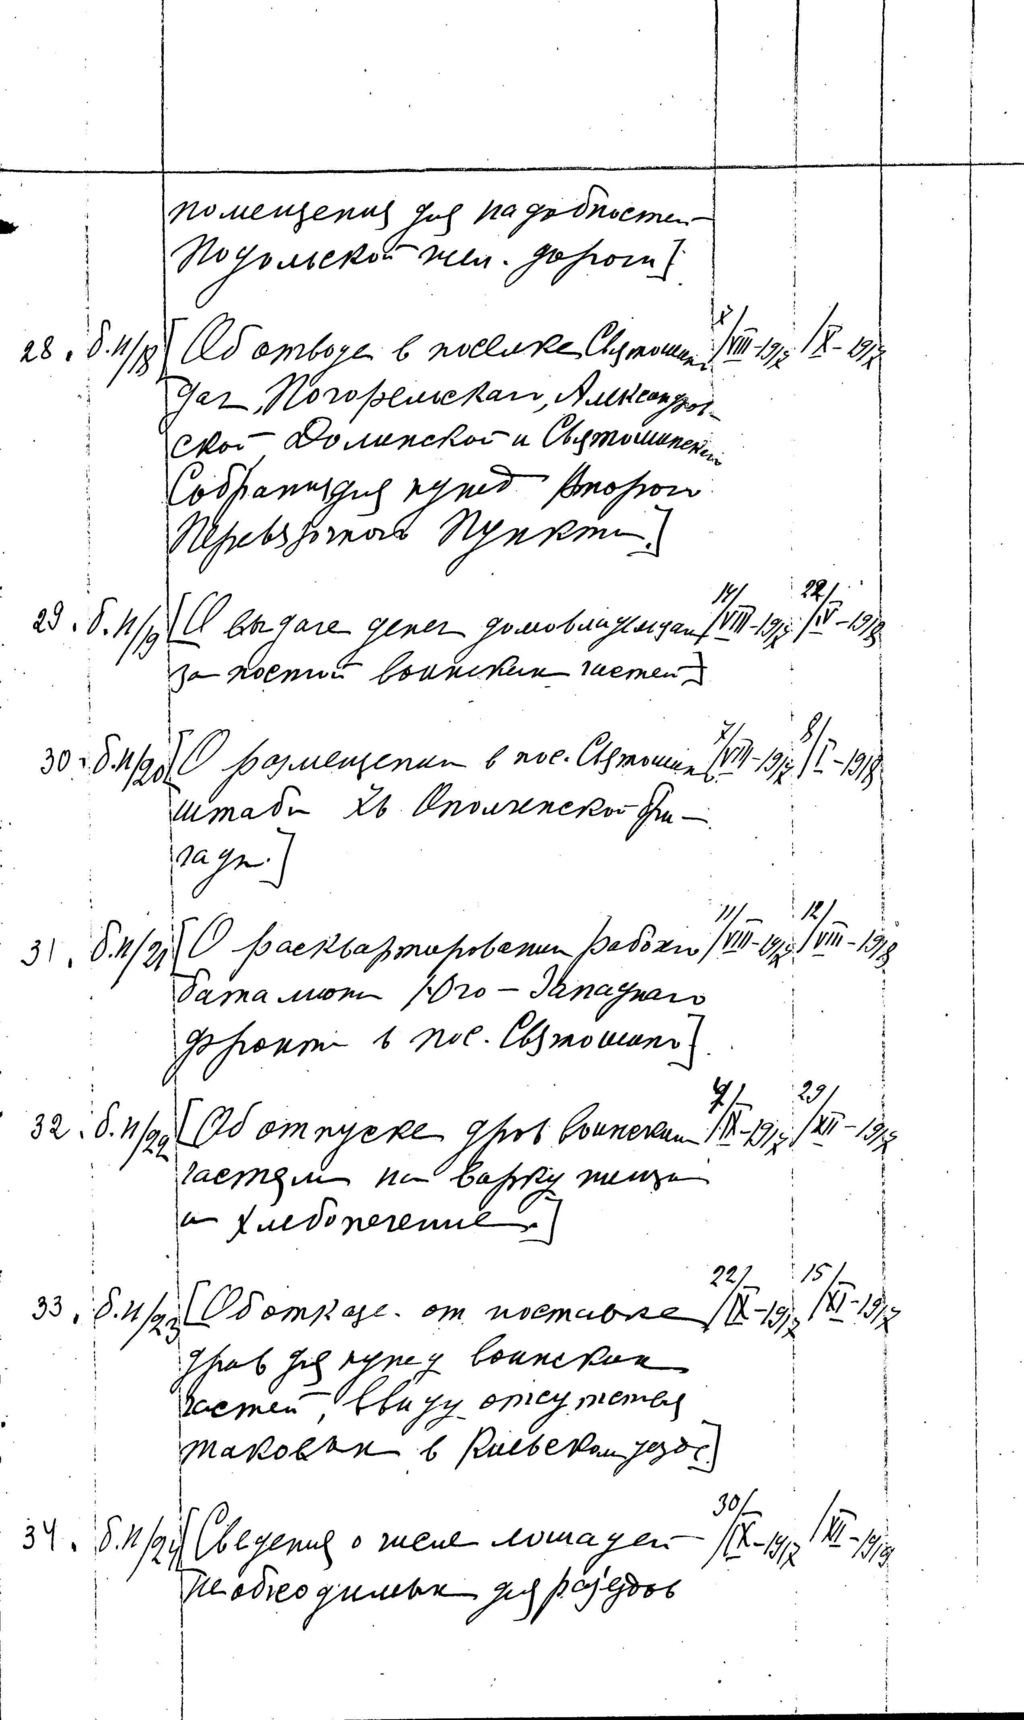 помещения для надобностей
Подольской жел. дороги]
28. б.н/18 [Об отводе в поселке Святошин /VIII-1917 /X-1917
дач, Погорельскаго, Александров-
ской Долинской и Святошинского
Собрания для нужд Второго
Перевязочного Пункта.]
29. б.н/19 [О выдаче денег домовладельцам 14/VIII-1917 22/IV-1918
за постой воинских частей]
30. б.н/20 [О размещении в пос. Святошино 7/VIII-1917 8/I-1918
штаба Ополченской бри-
гады.]
31. б.н/21 [О расквартировании рабочего 11/VIII-1917 12/VIII-1918
баталиона Юго-Западнаго
фронта в пос. Святошино]
32. б.н/22 [Об отпуске дров воинским /IX-1917 29/XII-1917
частям на варку пищи
и хлебопечение.]
33. б.н/23 [Об отказе от поставке 22/IX-1917 15/XI-1917
дров для нужд воинских
частей, ввиду отсутствия
таковых в Киевском уезде]
34. б.н/24 [Сведения о числе лошадей 30/IX-1917 /XII-1919
необходимых для разъездов